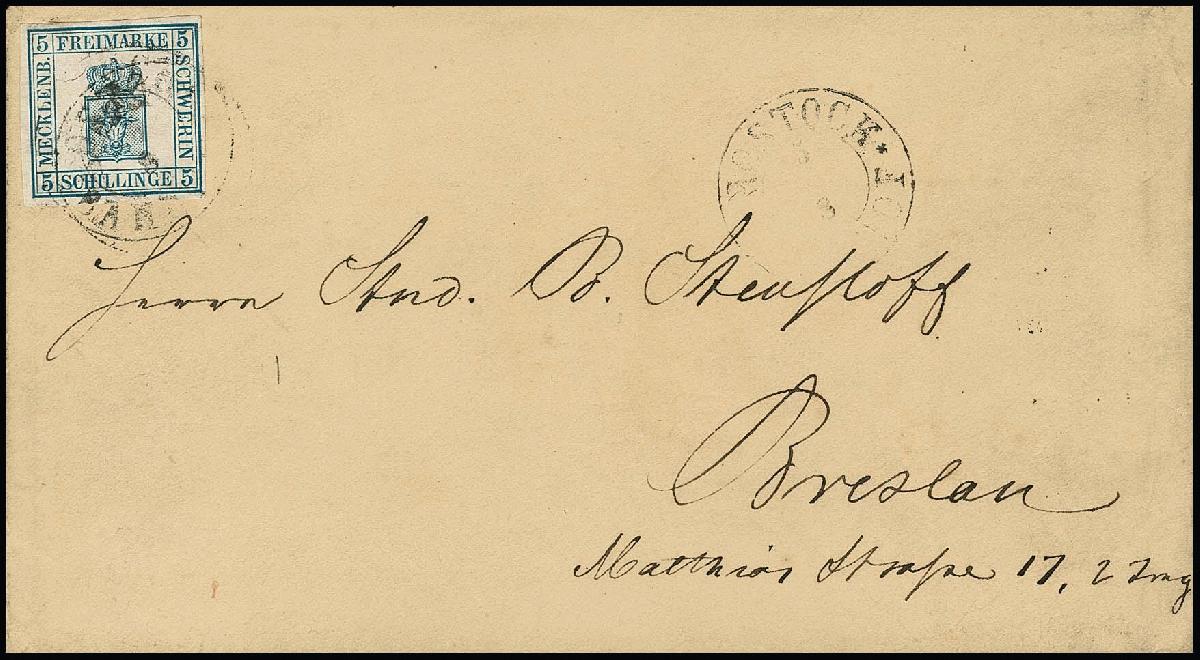 5 FREIMARKE 5
MECKLENB.
SCHWERIN
5 SCHILLINGE 5
BAH
ROSTOCK
Herrn Stud. B. Stenfloff
Breslau
Matthias Straße 17, 2